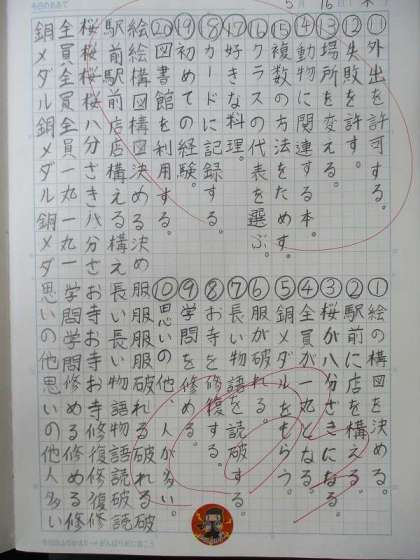 5月16日 木
今日のめあて
⑪外出を許可する。
⑫失敗を許す。
⑬場所を変える。
⑭動物に関連する本。
⑮複数の方法をためす。
⑯クラスの代表を選ぶ。
⑰好きな料理。
⑱カードに記録する。
⑲初めての経験。
⑳図書館を利用する。
絵絵構図構図決める決め
駅前駅前店構える構え
桜桜八分さき八分さ
全員全員一丸一丸一
銅メダル銅メダル銅メダ
①絵の構図を決める。
②駅前に店を構える。
③桜が八分ざきになる。
④全員が一丸となる。
⑤銅メダルをもらう。
⑥服が破れる。
⑦長い物語を読破する。
⑧お寺を修復する。
⑨学問を修める。
⑩思いの他、人が多い。
服服服破れる破れる破
長い長い物語物語読破読破
お寺お寺お寺修復修復修
学問学問修める修める修
思いの他思いの他人多い